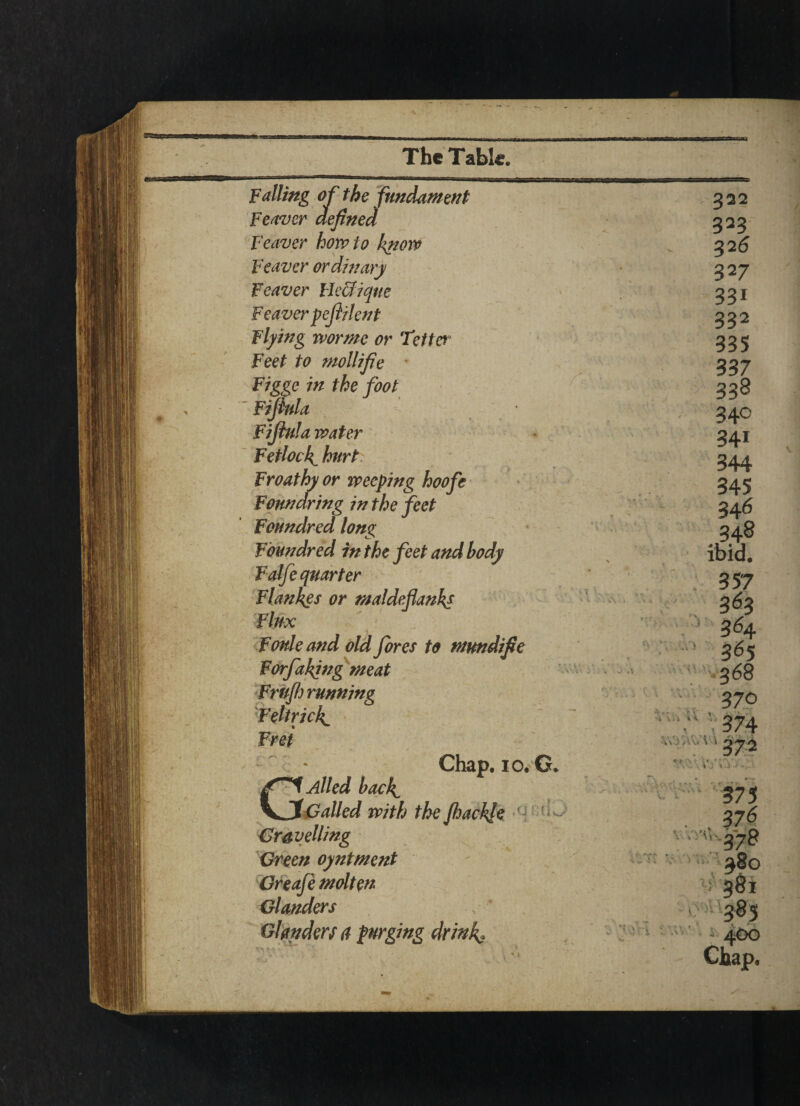 The Table.
Falling of the fundament 322
Feaver defined 323
Feaver how to know 326
Feaver ordinary 327
Feaver Hectique 331
Feaver pestilent 332
Flying worme or Tetter 335
Feet to mollifie 337
Figge in the foot 338
Fistula 340
Fistula water 341
Fetlock hurt 344
Froathy or weeping hoofe 345
Foundring in the feet 346
Foundred long 348
Foundred in the feet and body ibid.
False quarter 357
Flankes or maldeflanks 363
Flux 364
Foule and old sores to mundifie 365
Forsaking meat 368
Frush running 370
Feltrick 374
Fret 372
Chap. 10. G.
GAlled back 375
Galled with the shackle 376
Gravelling 378
Green oyntment 380
Grease molten 381
Glanders 385
Glanders a purging drink. 400
Chap.